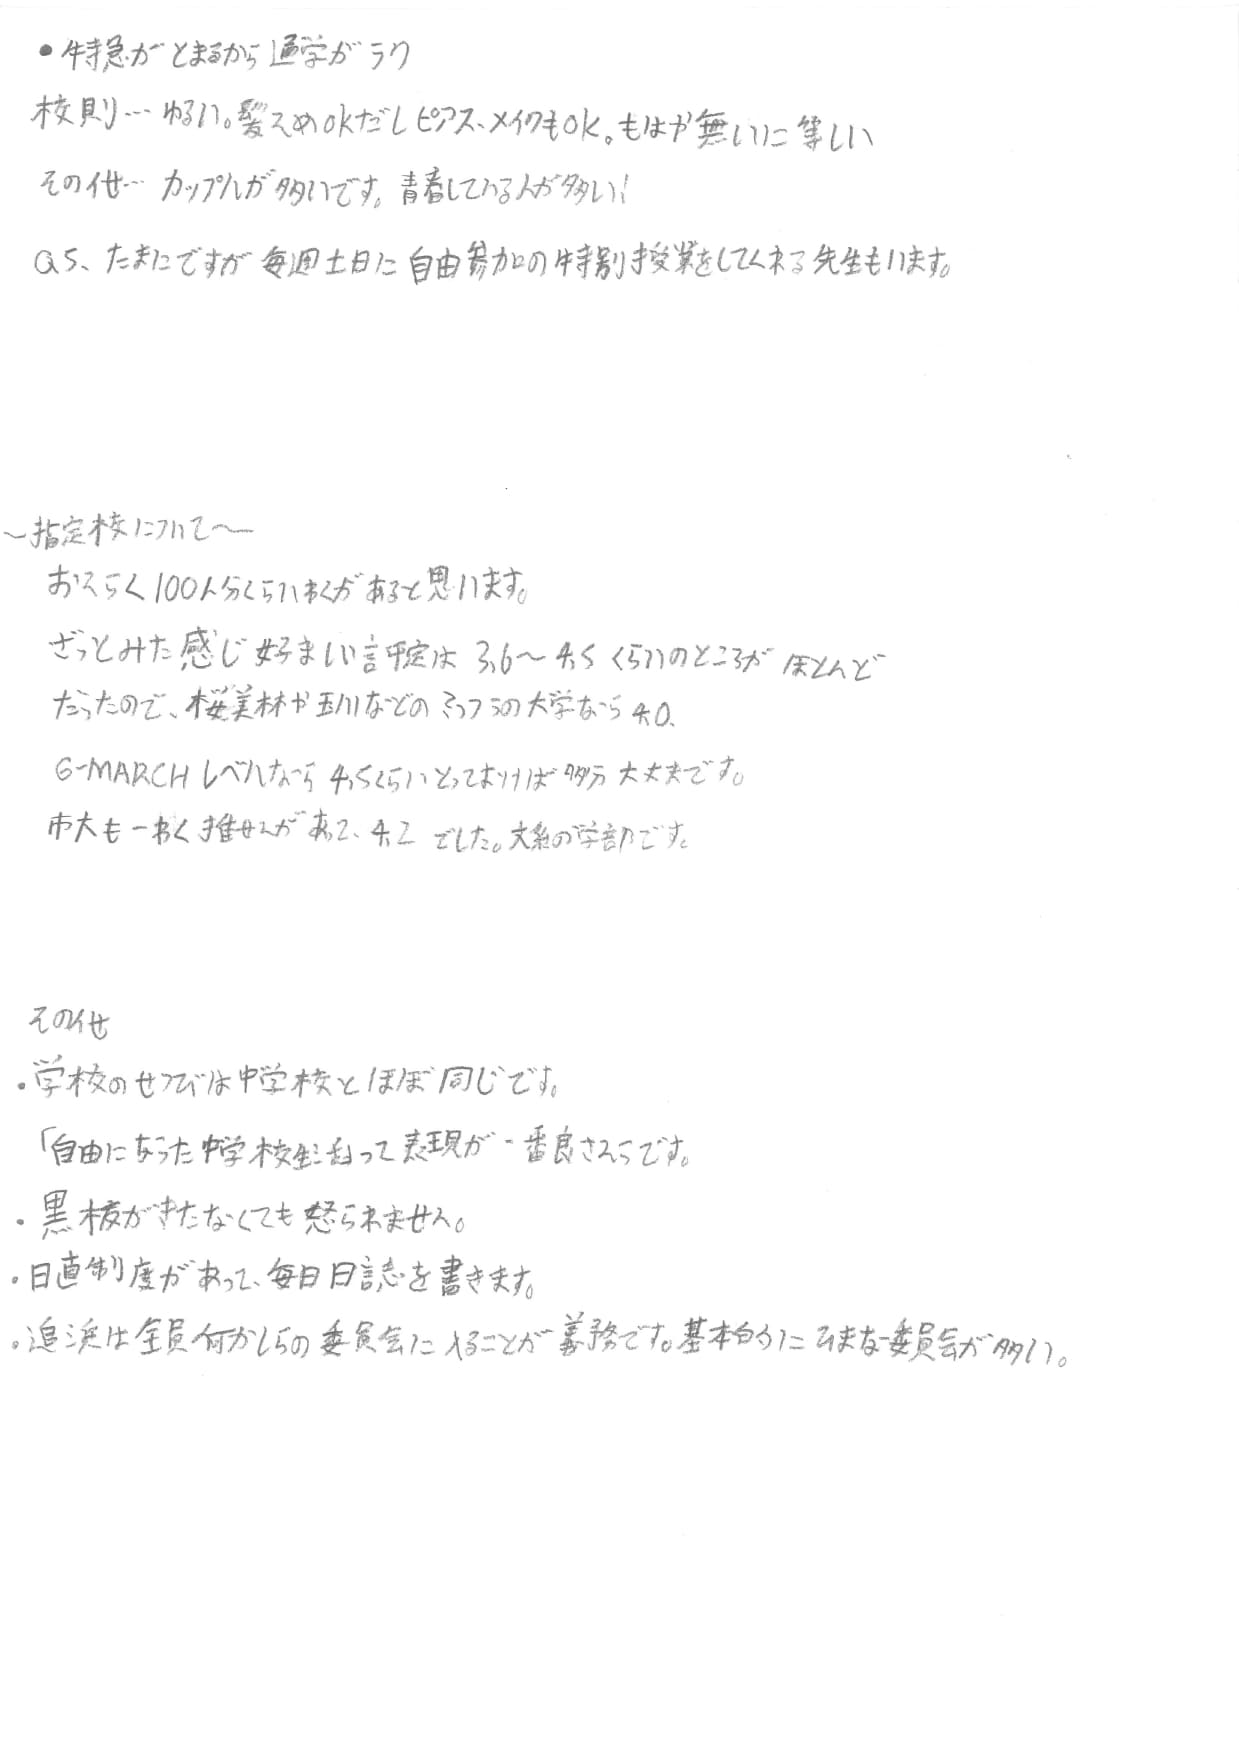 ・特急がとまるから通学がラク
校則… ゆるい。髪そめokだしピアス、メイクもOK。もはや無いに等しい
その他… カップルが多いです。青春している人が多い!
Q5、たまにですが毎週土日に自由参加の特別授業をしてくれる先生もいます。
〜指定校について〜
おそらく100人分くらいわくがあると思います。
ざっとみた感じ好ましい評定は 3.6〜4.5 くらいのところがほとんど
だったので、桜美林や玉川などのふつうの大学なら4.0、
G-MARCHレベルなら 4.5くらいとっておけば多分大丈夫です。
市大も一わく推せんがあって、4.2 でした。文系の学部です。
その他
・学校のせつびは中学校とほぼ同じです。
「自由になった中学校生活って表現が一番良さそうです。
・黒板がきたなくても怒られません。
・日直制度があって、毎日日誌を書きます。
・追浜は全員何かしらの委員会に入ることが義務です。基本的にひまな委員会が多い。